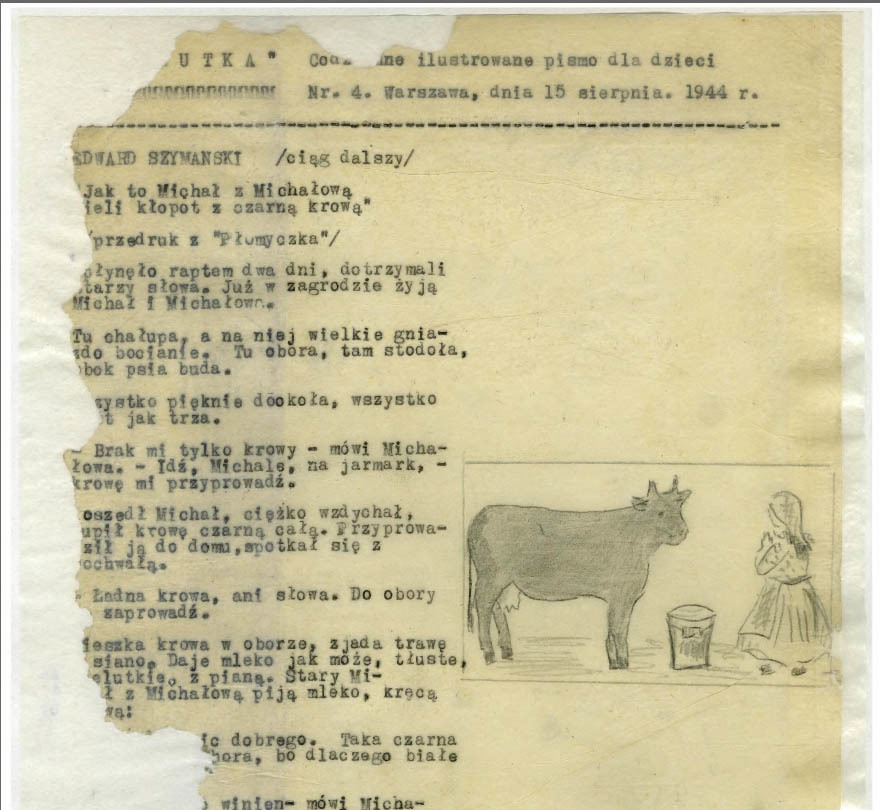 UTKA" Co ne ilustrowane pismo dla dzieci
Nr. 4. Warszawa, dnia 15 sierpnia. 1944 r.
EDWARD SZYMANSKI /ciąg dalszy/
"Jak to Michał z Michałową
ieli kłopot z czarną krową"
/przedruk z "Płomyczka"/
płynęło raptem dwa dni, dotrzymali
tarzy słowa. Już w zagrodzie żyją
Michał i Michałowa.
Tu chałupa, a na niej wielkie gnia-
zdo bocianie. Tu obora, tam stodoła,
obok psia buda.
szystko pięknie dookoła, wszystko
t jak trza.
- Brak mi tylko krowy - mówi Micha-
łowa. - Idź, Michale, na jarmark, -
krowę mi przyprowadź.
oszedł Michał, ciężko wzdychał,
upił krowę czarną całą. Przyprowa-
ził ją do domu,spotkał się z
ochwałą.
- Ładna krowa, ani słowa. Do obory
zaprowadź.
ieszka krowa w oborze, zjada trawę
siano. Daje mleko jak może, tłuste,
elutkie, z pianą. Stary Mi-
ł z Michałową piją mleko, kręcą
wą:
ic dobrego. Taka czarna
hora, bo dlaczego białe
winien- mówi Micha-